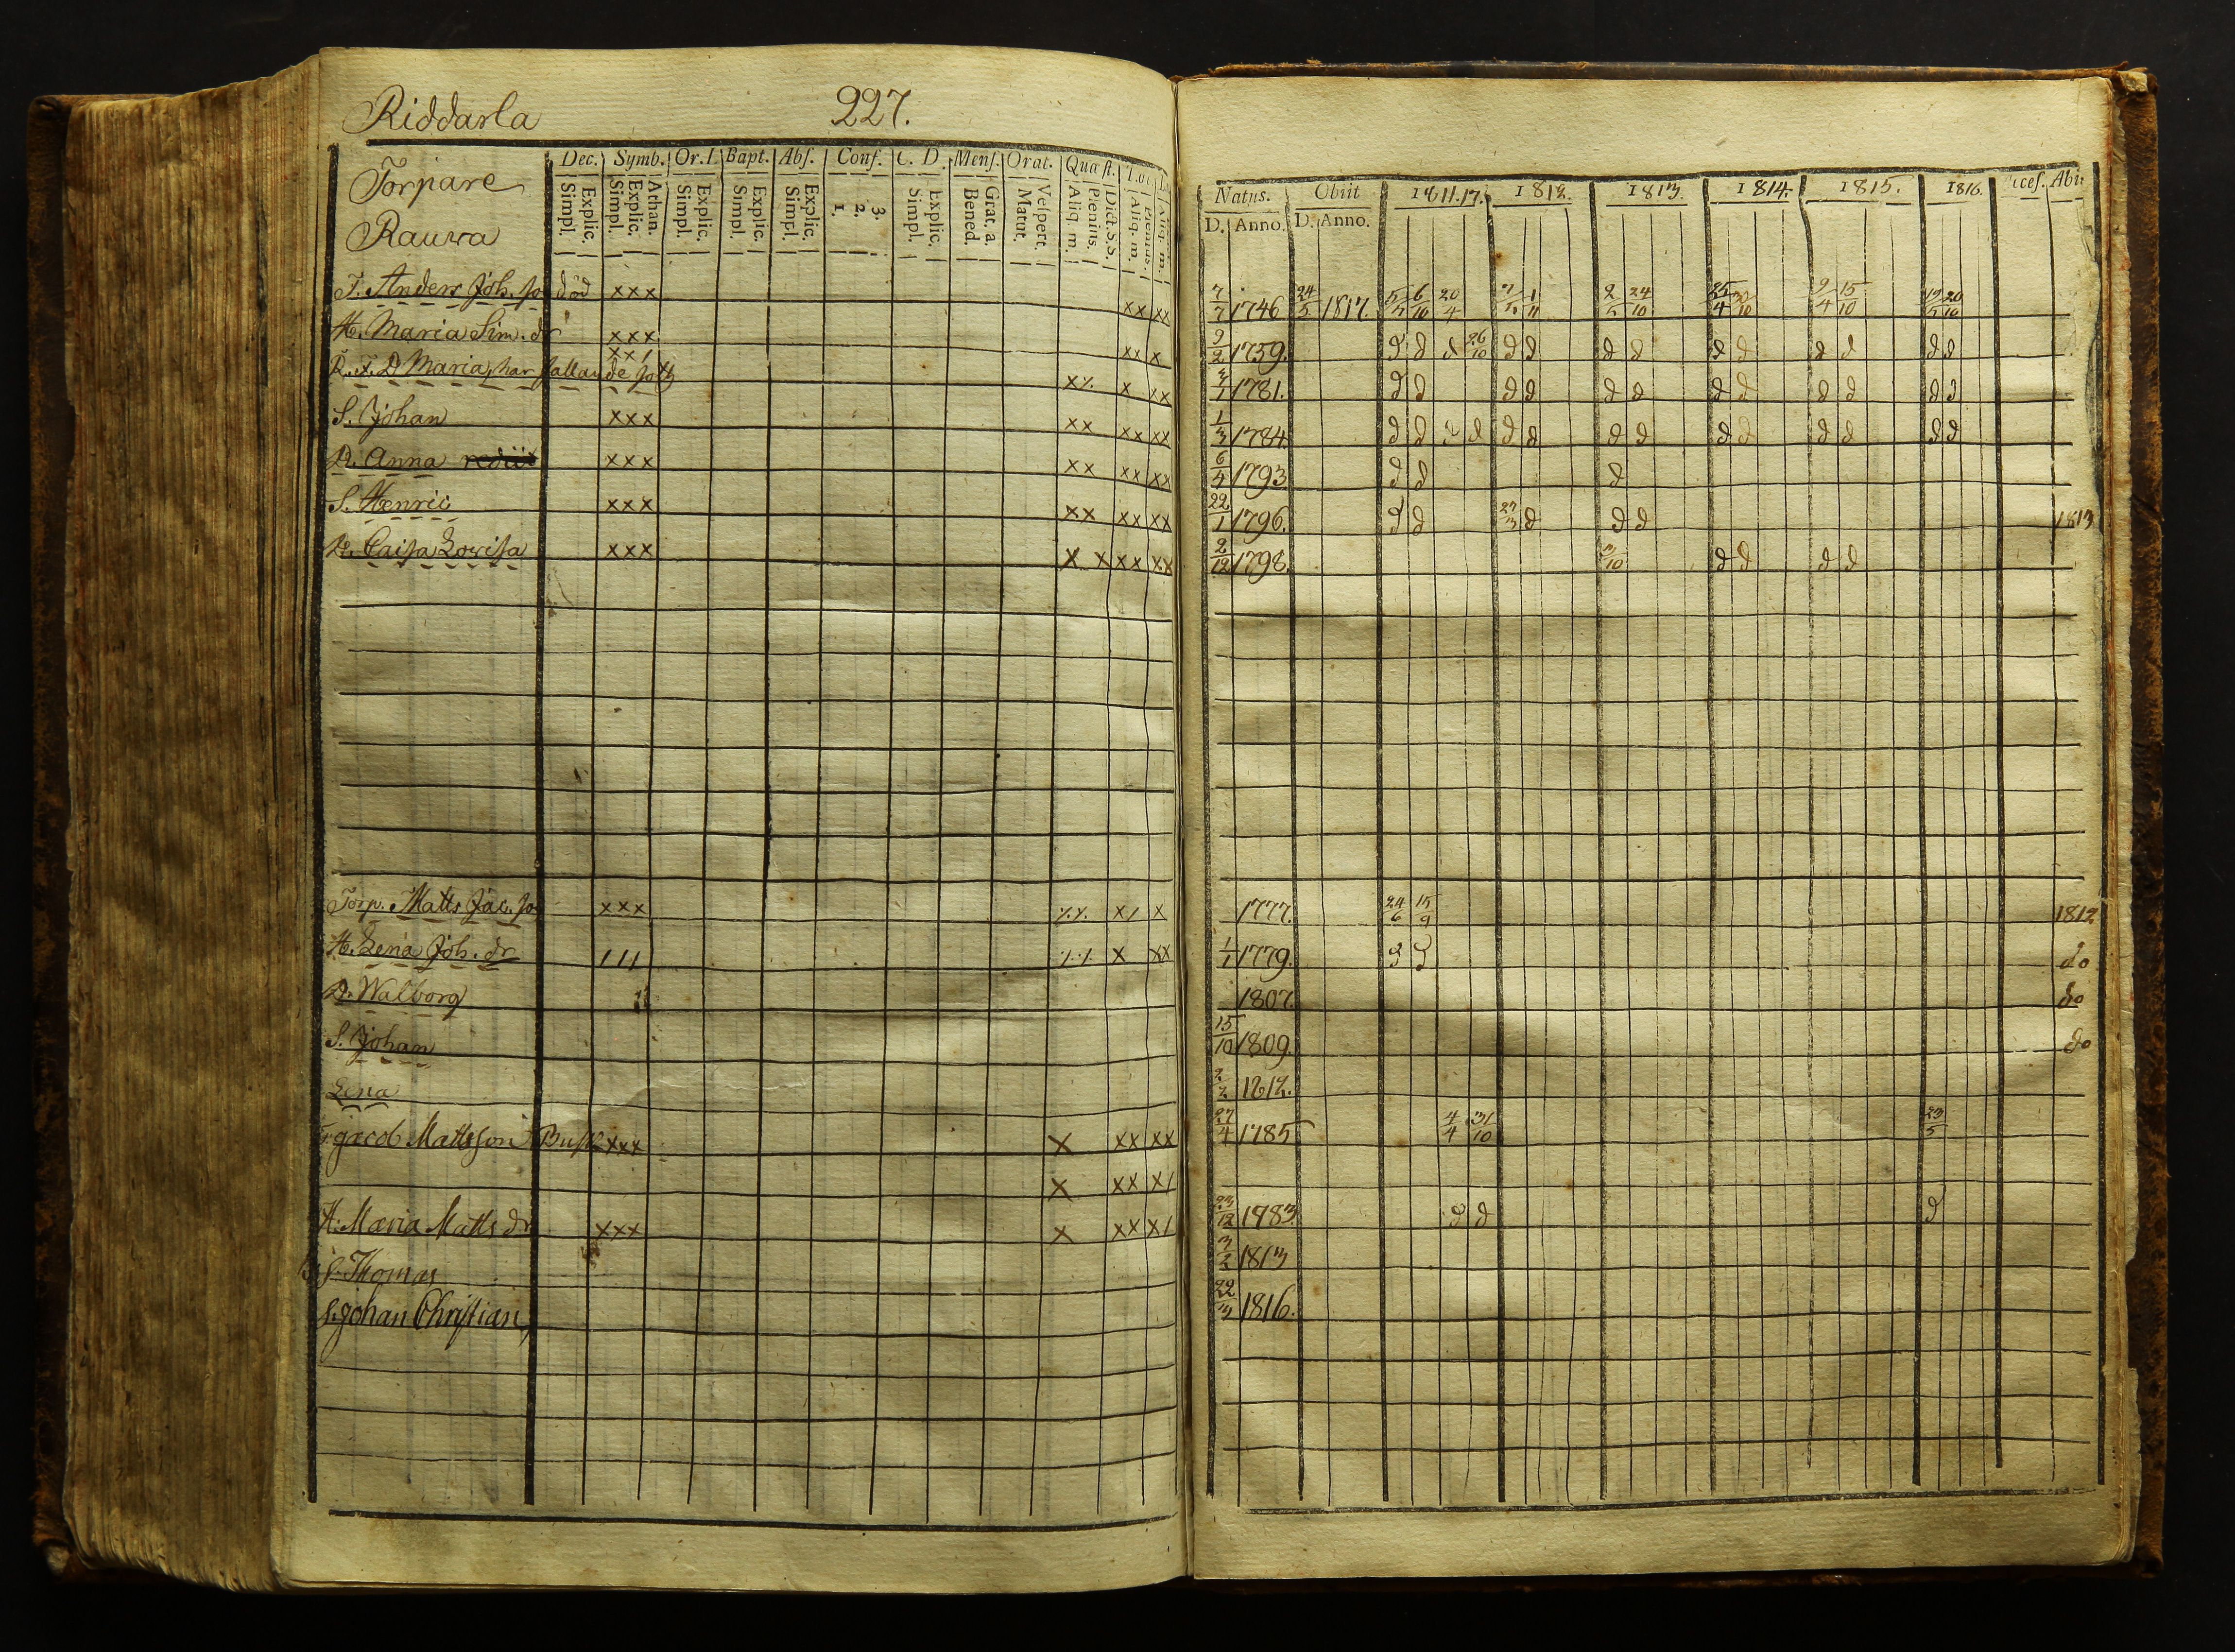 Riddarla 227.
Torpare
Rauwa
Dec. Symb. Or. D. Bapt. Abs. Conf. C. D. Mens. Orat. Quæst.
Explic. Simpl. Athan. Explic. Simpl. Explic. Simpl. Explic. Simpl. Explic. Simpl. 3. 2. 1. Explic. Simpl. Grat. a. Bened. Vespert. Matut. Dict. S. S. Plenius. Aliq. m. Plenius. Aliq. m.
Natus. Obiit 1811.17. 1812. 1813. 1814. 1815. 1816. Abii
D. Anno. D. Anno.
T. Anders Joh. so död xxx xx xx 7/7 1746 24/5 1817. 5/5 6/10 20/4 1/11 24/10 25/4 30/10 9/4 15/10 20/10
H. Maria Sim. dr xxx xx x 9/2 1759. d d d 26/10 d d d d d d d d d d
Maria, har fallande sot xx/ x xx 1781. d d d d d d d d d d d d
S. Johan xxx xx xx xx 1/3 1784 d d d d d d d d d d d d
D. Anna rediit xxx xx xx xx 6/4 1793 d d d
S. Henric xxx xx xx xx 22/1 1796. d d d d d 1813
D. Caisa Lovisa xxx x x xx xx 2/12 1798. d d d d
Torp. Matts Jac. so xxx x/ x 1777. 24/6 15/9 1812
H. Lena Joh. dr /// x xx 1/1 1779. d d do
D. Walborg 1807. do
S. Johan 15/10 1809. do
Lena 1812.
Jacob Mattsson Busk xxx x xx xx 27/4 1785 4/4 31/10 23/5
x xx x/
H. Maria Matts dr xxx x xx x/ 23/12 1783 d d d
S. Thomas 3/2 1813
S. Johan Christian 22/3 1816.